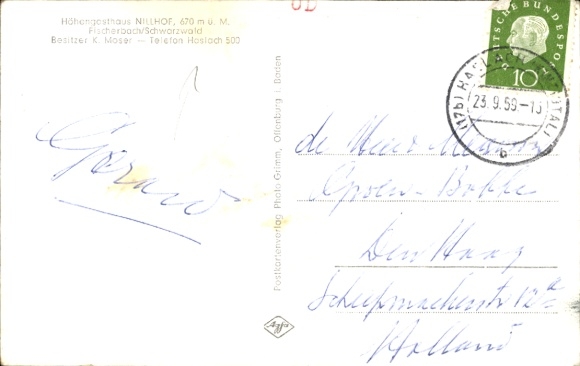 Höhengasthaus NILLHOF, 670 m ü. M.
Fischerbach/Schwarzwald
Besitzer K. Moser — Telefon Haslach 500
Gerard
Postkartenverlag Photo-Grimm, Offenburg i. Baden
Agfa
DEUTSCHE BUNDESPOST
10
(17b) HASLACH (KINZIGTAL)
23.9.59-13
b
de Heer Mevrouw
Den Haag
Scheepmakerstr 12a
Holland